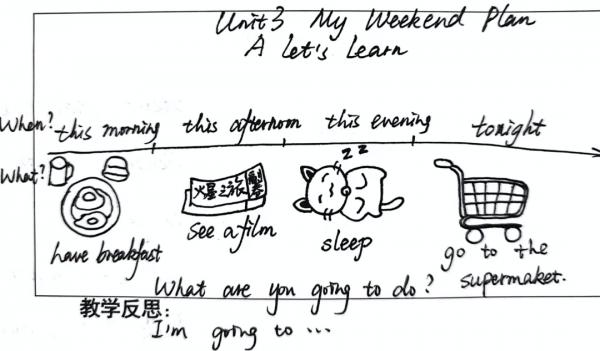 Unit3 My Weekend Plan
A let's learn
When? this morning this afternoon this evening tonight
What?
zz
火星之旅 副券
have breakfast see a film sleep go to the supermaket.
What are you going to do?
教学反思:
I'm going to ...